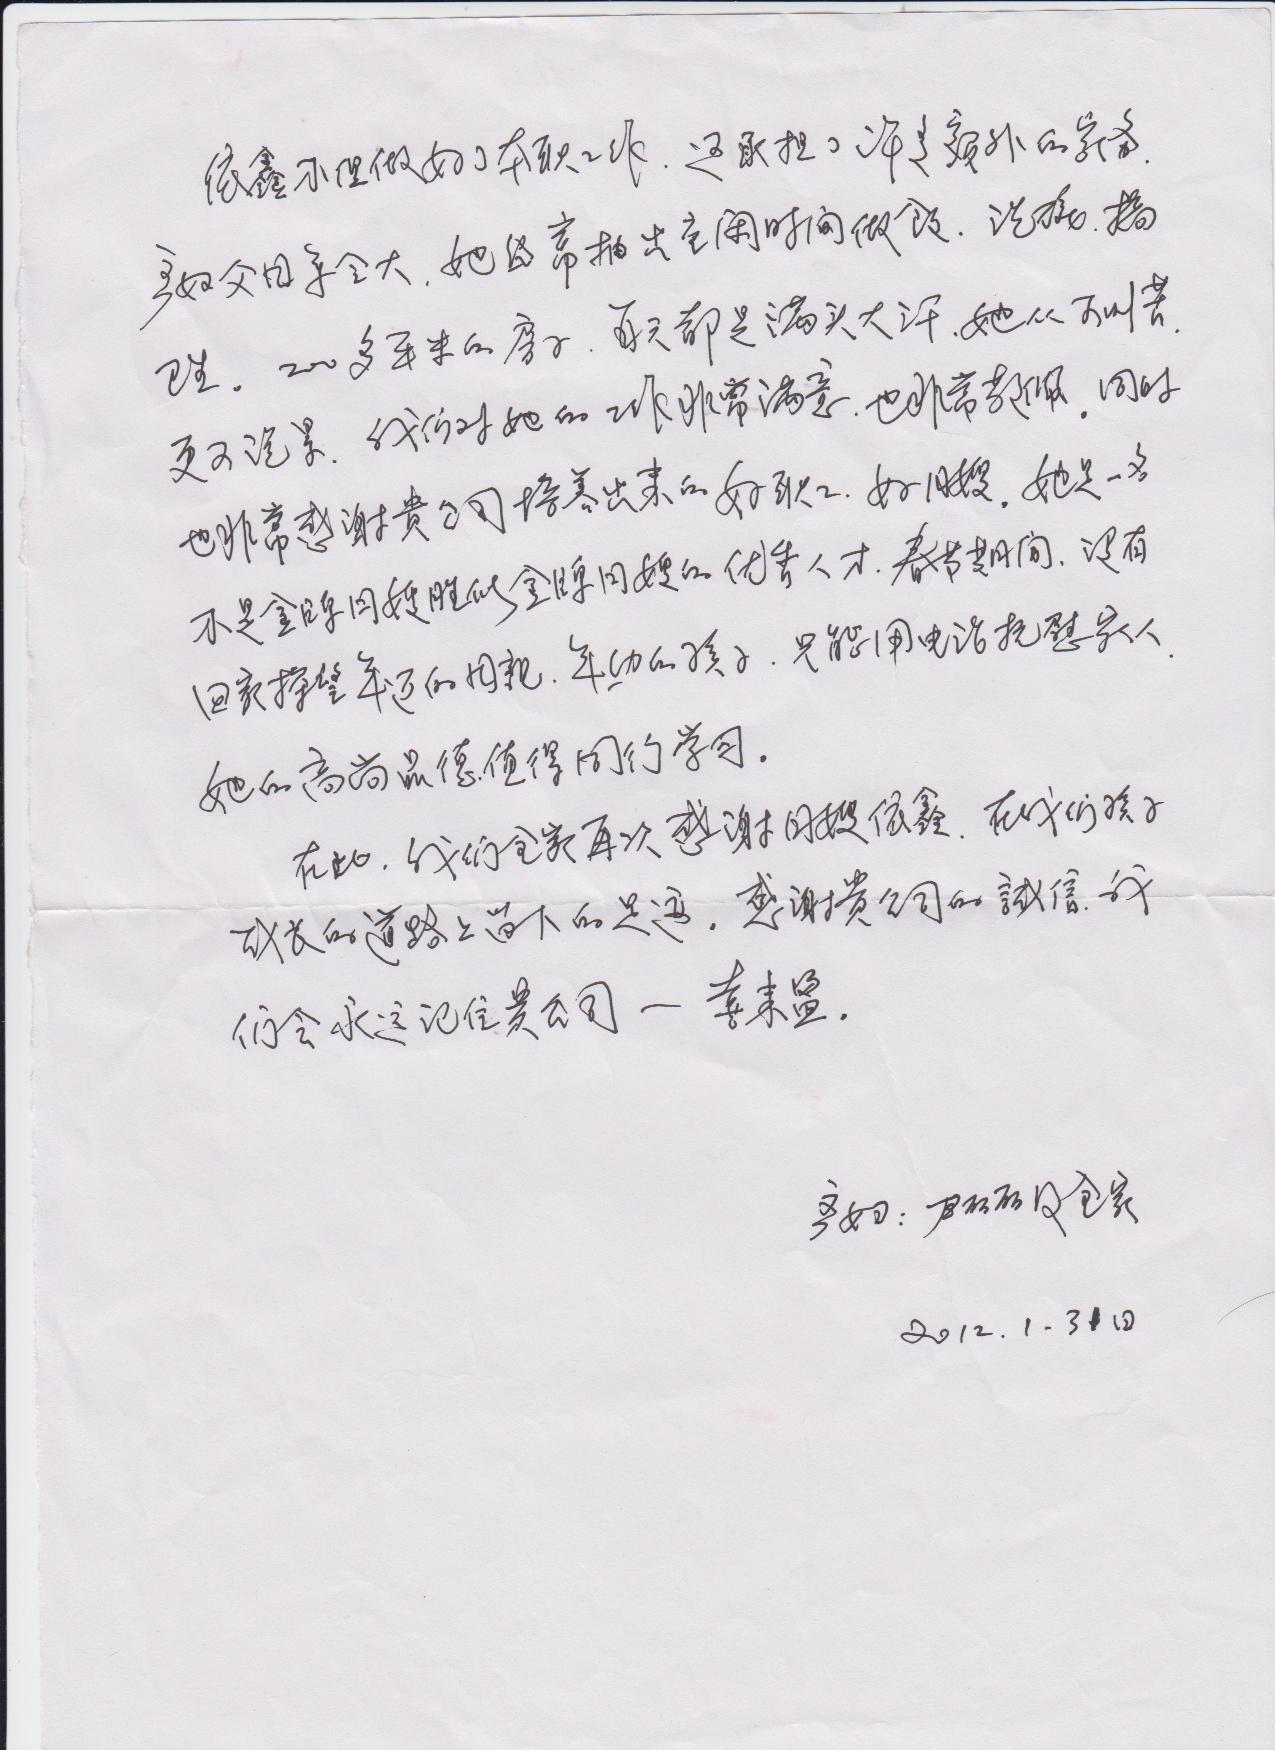 依鑫不但做好了本职工作.还承担了许多额外的家务.
产妇父母年令大.她经常抽出空闲时间做饭.洗碗.搞
卫生.200多平米的房子.每天都是满头大汗.她从不叫苦.
更不说累.我们对她的工作非常满意.也非常敬佩.同时
也非常感谢贵公司培养出来的好职工.好月嫂.她是一名
不是金牌月嫂胜似金牌月嫂的优秀人才.春节期间.没有
回家探望年迈的母亲.年幼的孩子.只能用电话抚慰家人.
她的高尚品德值得同行学习.
在此.我们全家再次感谢月嫂依鑫.在我们孩子
成长的道路上留下的足迹.感谢贵公司的誠信.我
们会永远记住贵公司一喜来盈.
产妇:尹丽丽及全家
2012.1.31日